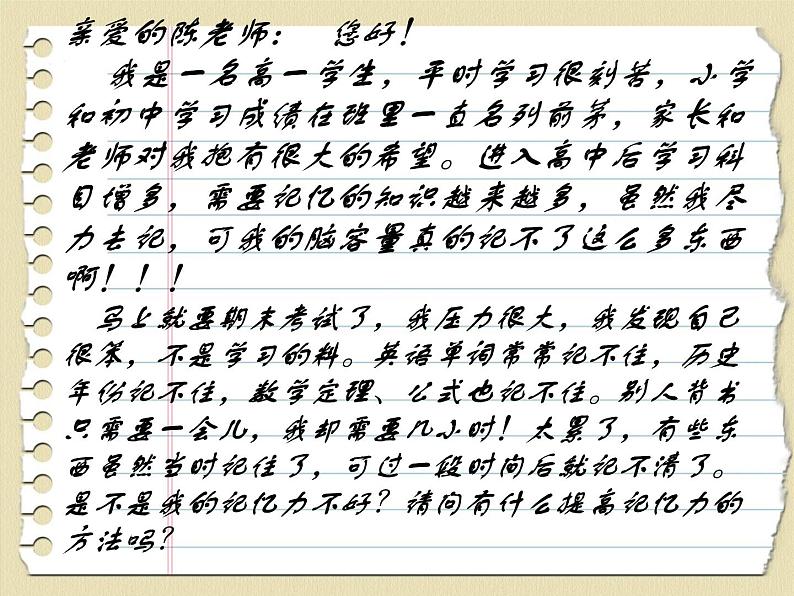 亲爱的陈老师：  您好！
我是一名高一学生，平时学习很刻苦，小学
和初中学习成绩在班里一直名列前茅，家长和
老师对我抱有很大的希望。进入高中后学习科
目增多，需要记忆的知识越来越多，虽然我尽
力去记，可我的脑容量真的记不了这么多东西
啊！！！
马上就要期末考试了，我压力很大，我发现自己
很笨，不是学习的料。英语单词常常记不住，历史
年份记不住，数学定理、公式也记不住。别人背书
只需要一会儿，我却需要几小时！太累了，有些东
西虽然当时记住了，可过一段时间后就记不清了。
是不是我的记忆力不好？请问有什么提高记忆力的
方法吗？